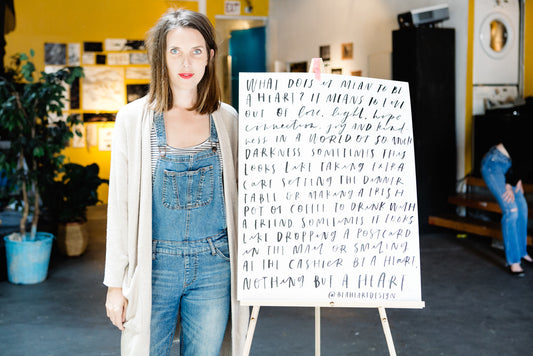 EXIT
WHAT DOES IT MEAN TO BE
A HEART? IT MEANS TO LIVE
OUT OF love, light, hope,
connection, joy AND kind
NESS IN A WORLD OF SO MUCH
DARKNESS. SOMETIMES THIS
LOOKS LIKE TAKING EXTRA
CARE SETTING THE DINNER
TABLE OR MAKING A FRESH
POT OF COFFEE TO DRINK WITH
A FRIEND. SOMETIMES IT LOOKS
LIKE DROPPING A POSTCARD
IN THE MAIL OR SMILING
AT THE CASHIER. BE A HEART,
NOTHING BUT A HEART
@BEAHEARTDESIGN